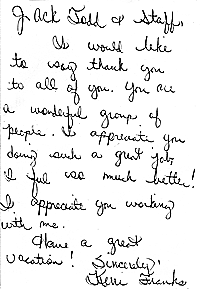 Jack Todd & Staff,
I would like
to say thank you
to all of you. You are
a wonderful group of
people. I appreciate you
doing such a great job,
I feel so much better!
I appreciate you working
with me.
Have a great
vacation! Sincerely,